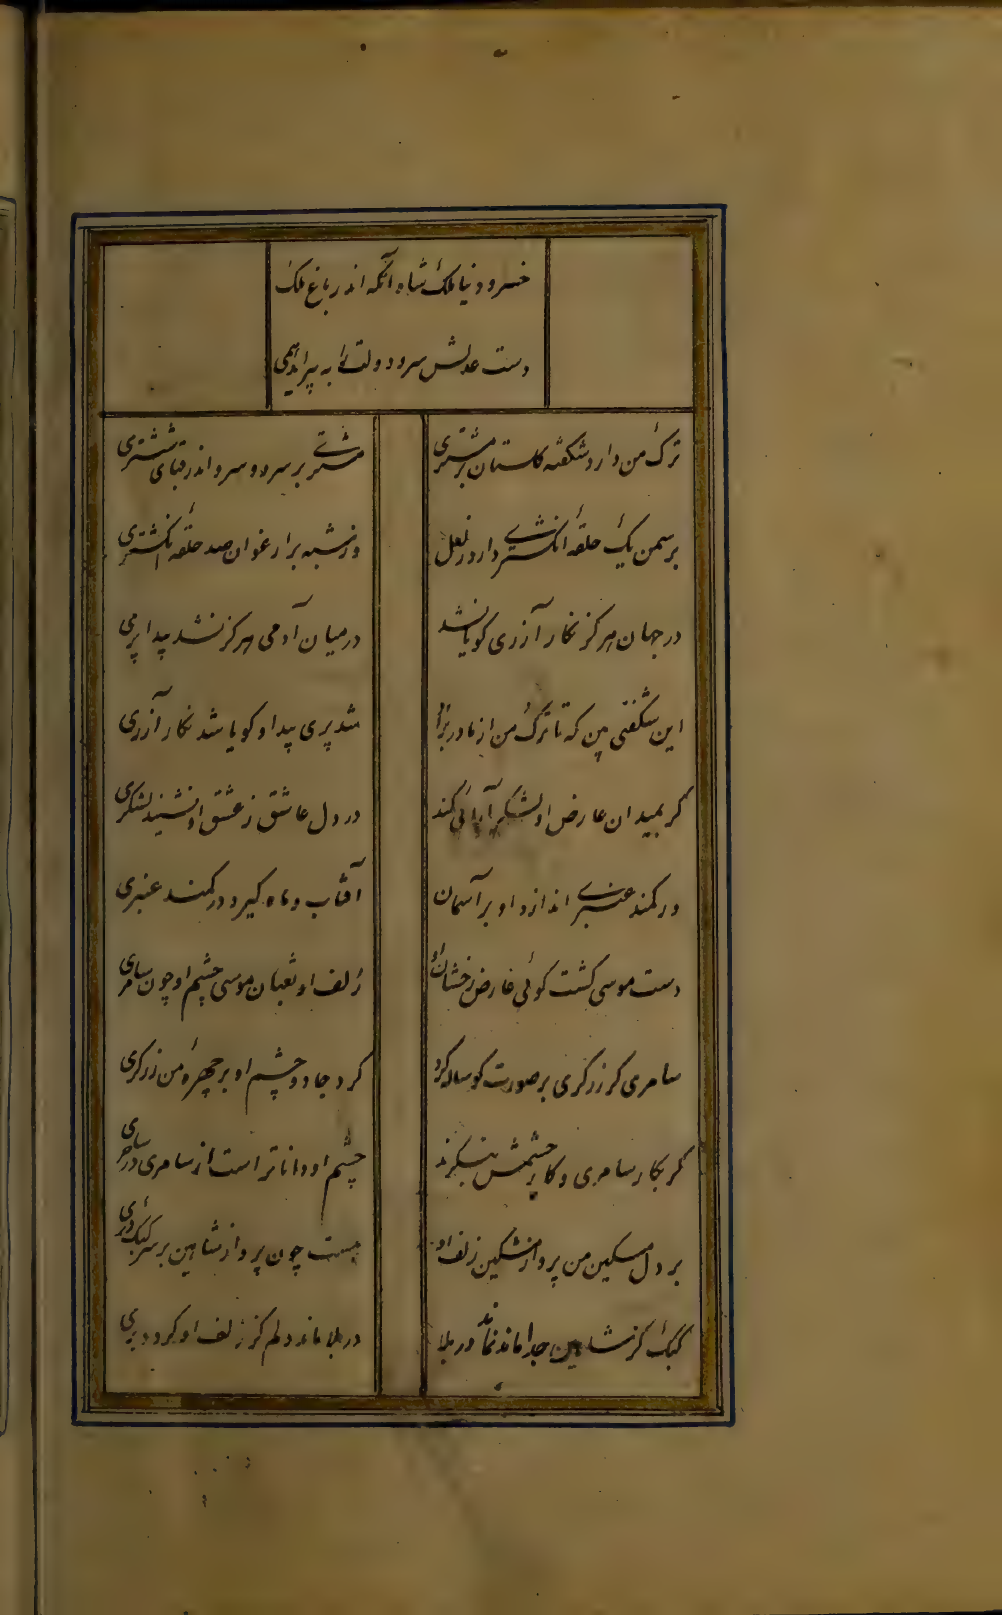 خسرو دنیا ملک شاه آنکه اندر باغ ملک
دست عدلش سرو دولت را به پیراید همی
ترک من دارد شکفته گلستان بر مشتری
مشتری بر سرو و سرو اندر قبای ششتری
بر سمن یک حلقه انگشتری دارد ز لعل
وز شبه بر ارغوان صد حلقه انگشتری
در جهان هرکز نکار آزری کویا نشد
در میان آدمی هرکز نشد پیدا پری
این شگفتی بین که تا ترک من از مادر بزاد
شد پری پیدا و کویا شد نکار آزری
گر بمیدان عارض او لشکر آرائی کند
در دل عاشق ز عشق او نشیند لشکری
ور کمند عنبری اندازد او بر آسمان
آفتاب و ماه کیرد در کمند عنبری
دست موسی کشت کوئی عارض رخشان او
زلف او ثعبان موسی چشم او چون سامری
سامری کر زرکری بر صورت کوساله کرد
کرد جادو چشم او بر چهره من زرکری
گر بکار سامری و کار چشمش بنگرند
چشم او داناتر است از سامری در ساحری
بر دل مسکین من پرواز مشکین زلف او
هست چون پرواز شاهین بر سر کبک دری
کبک کز شاهین جدا ماند نماند در بلا
در بلا ماند دلم کز زلف او کردد بری